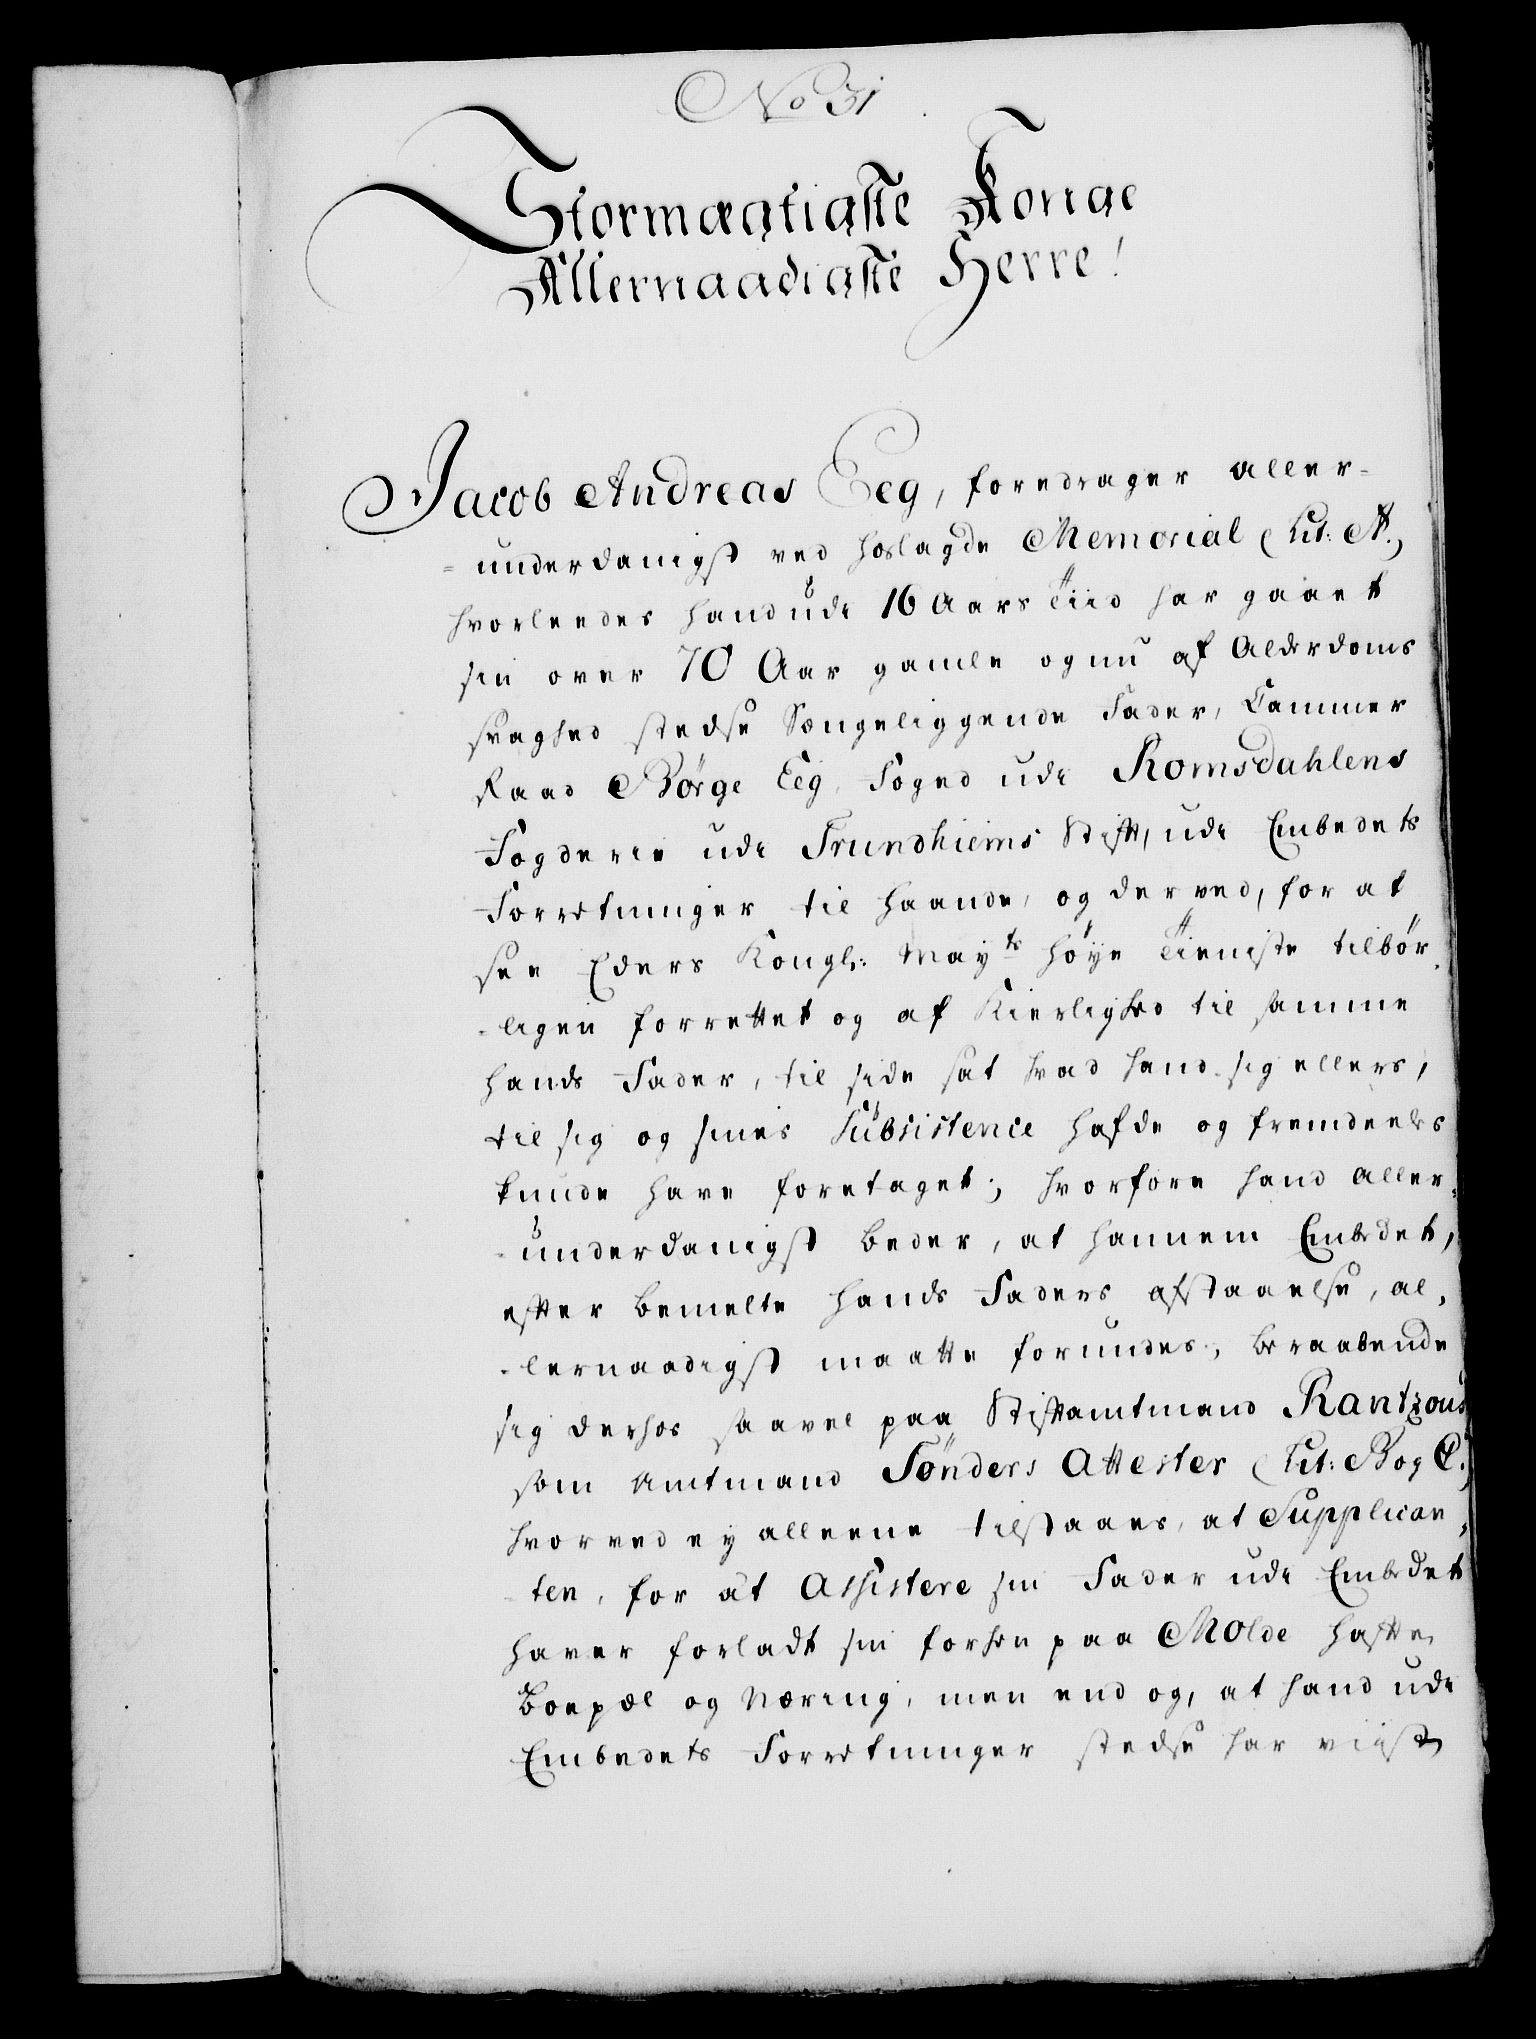 No 31
Stormægtigste Konge
Allernaadigste Herre!
Jacob Andreas Eeg, foredrager aller-
-underdanigst ved hoslagde Memorial (Lit: A.)
hvorleedes hand udi 16 Aars Tiid har gaaet
sin over 70 Aar gamle og nu af Alderdoms
svaghed stedse Sængeliggende Fader, Cammer
Raad Børge Eeg, Foged udi Romsdahlens
Fogderie udi Trundhiems Stift, udi Embedets
Forretninger til haande, og derved, for at
see Eders Kongl: Mayts høye Tieniste tilbør,
-ligen forrettet og af Kierlighed til samme
hands Fader, til side sat hvad hand sig ellers,
til sig og sines Subsistence hafde og fremdeels
kunde have foretaget; hvorfore hand aller-
-underdanigst beder, at hannem Embedet,
efter bemelte hands Faders afstaaelse, al,
-lernaadigst maatte forundes; beraabende
sig derhos saavel paa Stiftamtmand Rantzous
som Amtmand Tønders Attester (Lit: B og C.)
hvorved ey alleene tilstaaes, at Supplican,
-ten, for at Assistere sin Fader udi Embedet
haver forladt sin forhen paa Molde hafte
Boepæl og Næring, men end og, at hand udi
Embedets Forretninger stedse har viist